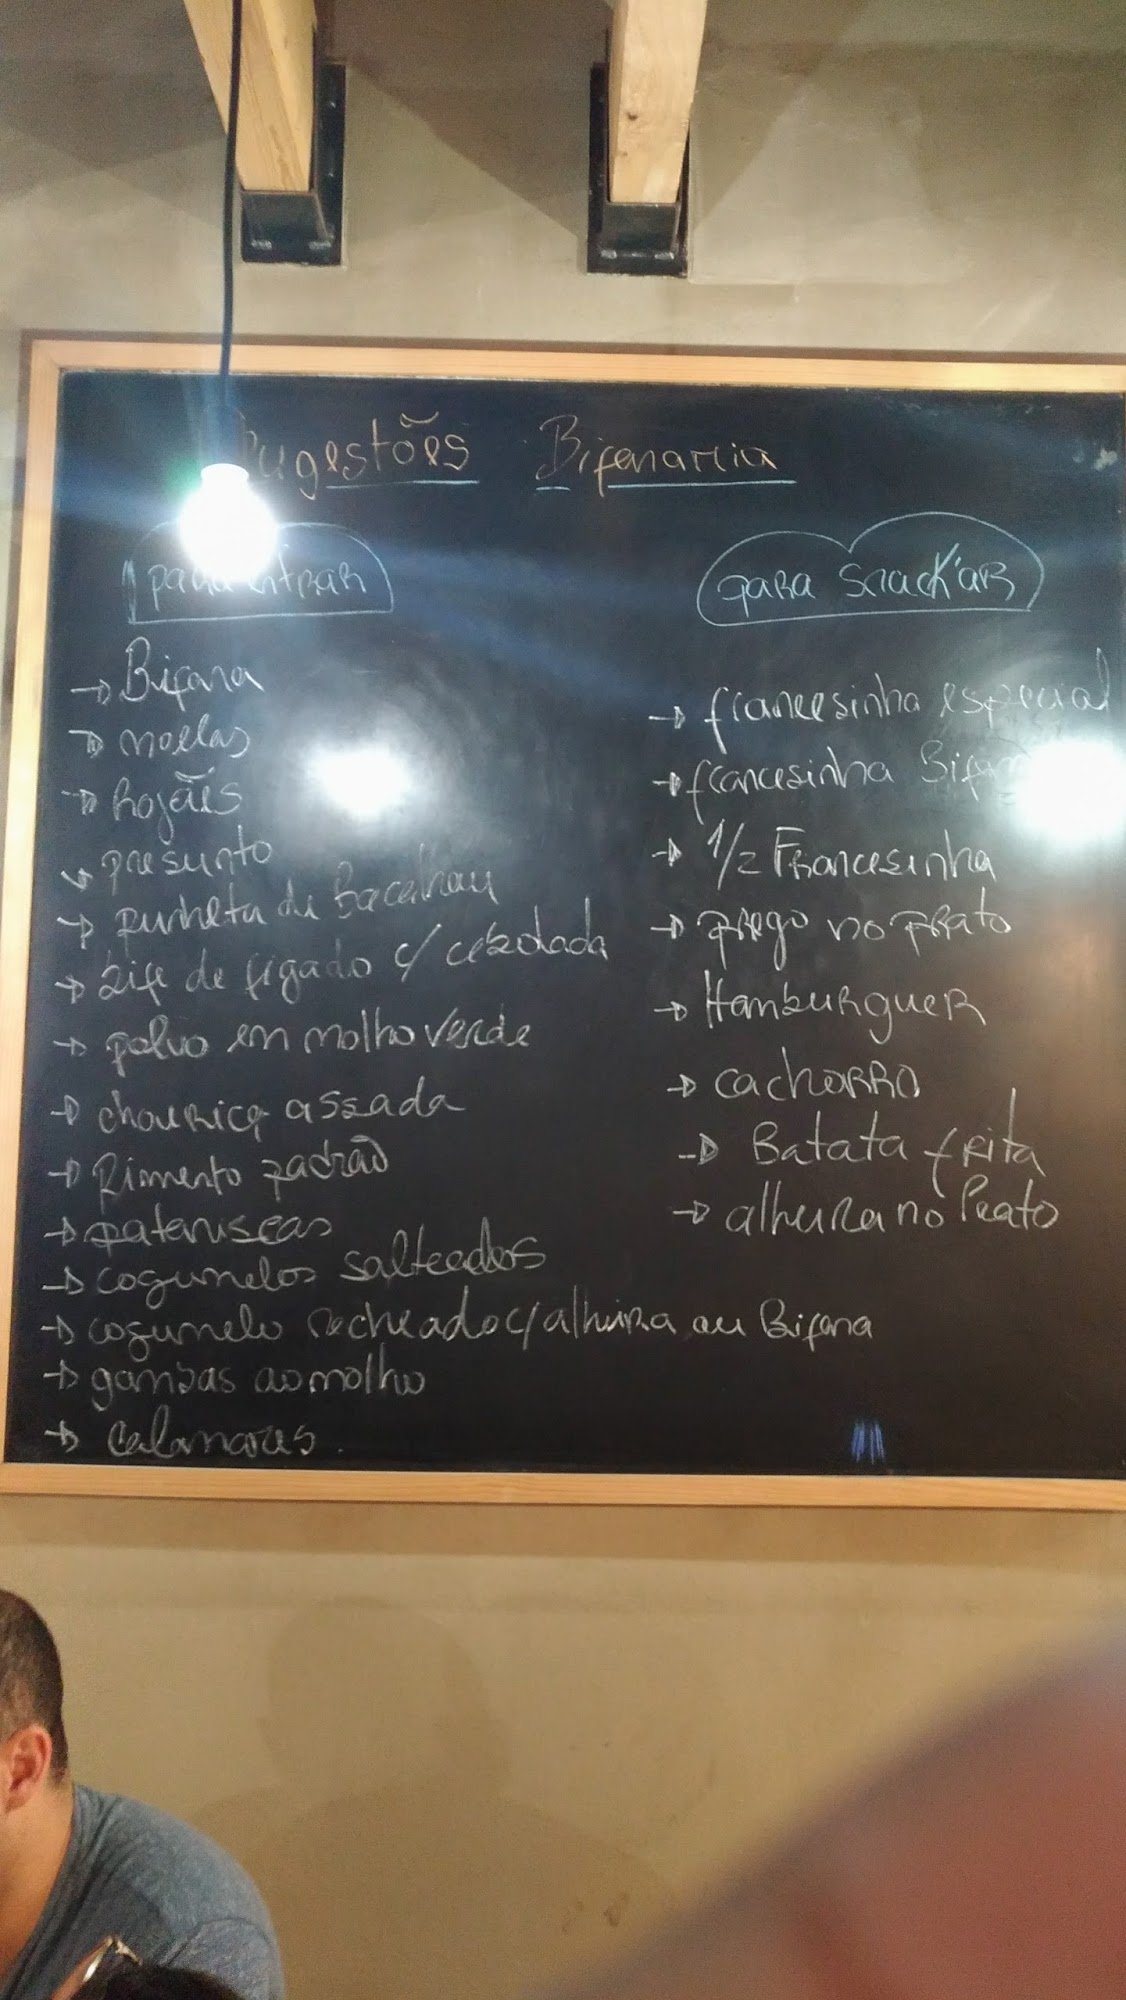 Sugestões Bifanaria
para entrar
Bifana
moelas
Rojões
presunto
punheta de Bacalhau
bife de fígado c/ cebolada
polvo em molho verde
chouriça assada
Pimento padrão
pataniscas
cogumelos salteados
cogumelo recheado c/ alheira ou Bifana
gambas ao molho
calamares.
para snack'ar
francesinha especial
francesinha
1/2 Francesinha
prego no prato
Hamburguer
cachorro
Batata frita
alheira no Prato